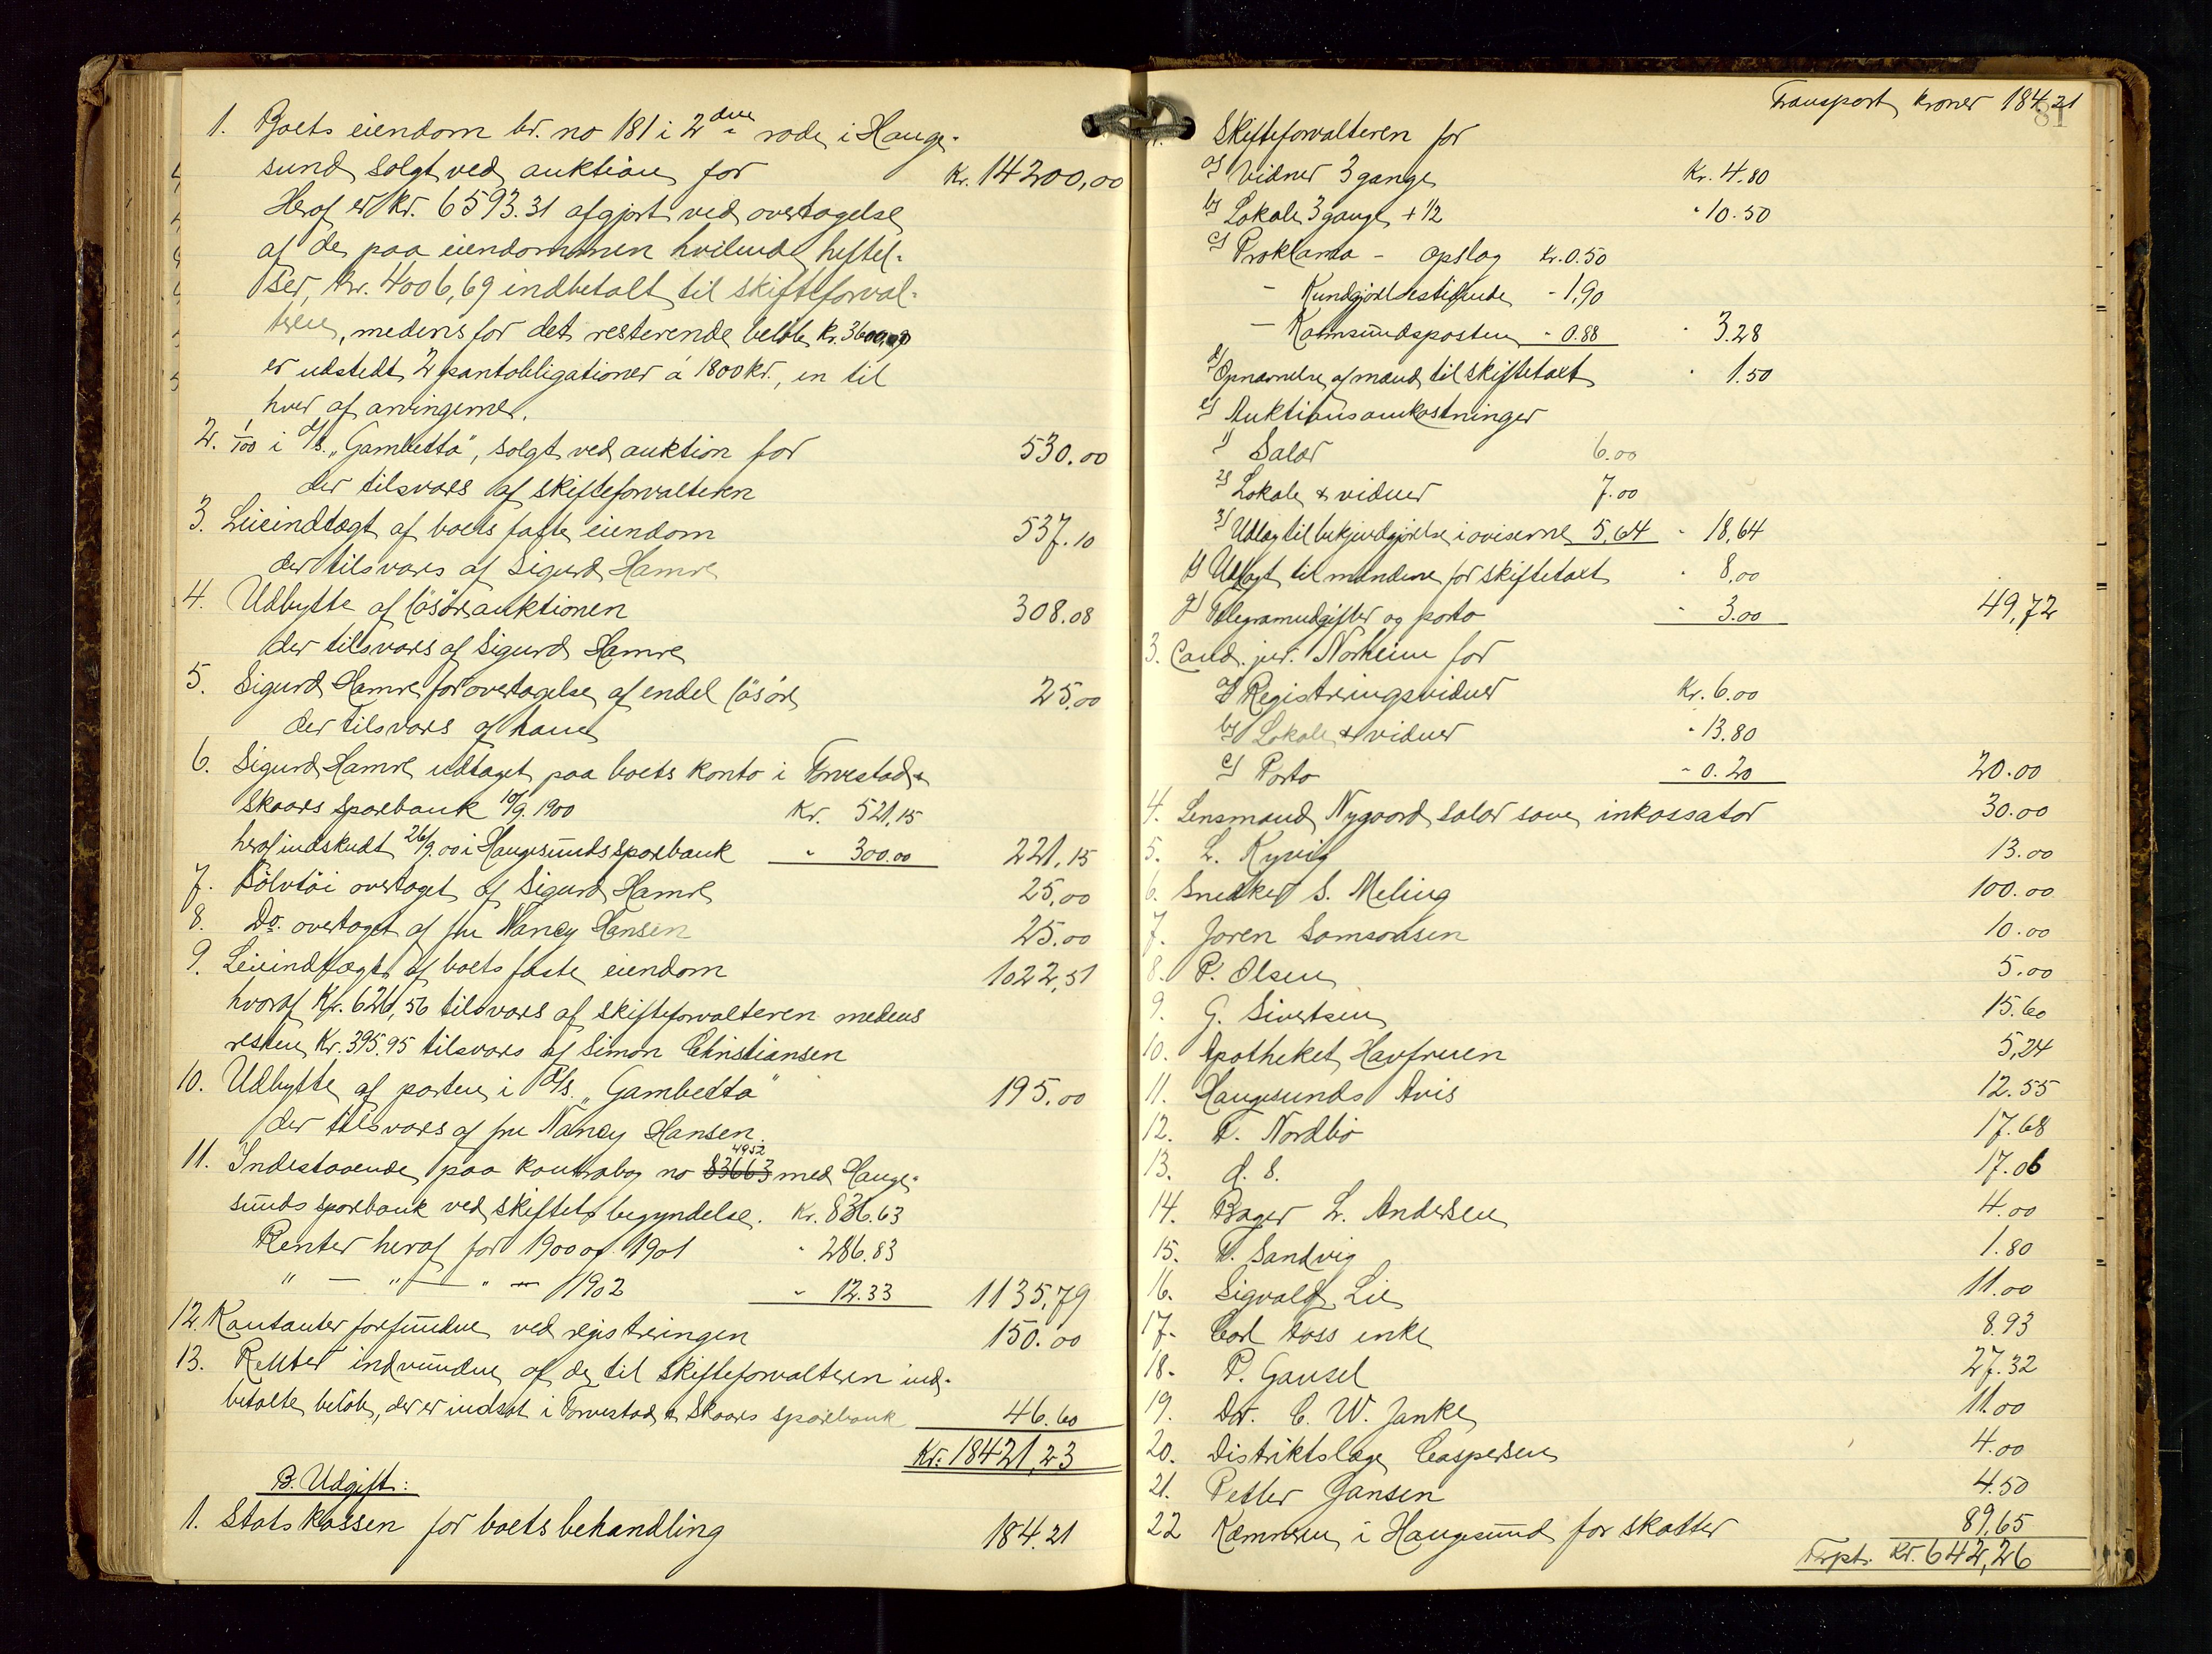 1. Boets eiendom br. no 181 i 2den rode i Hauge-
sund solgt ved auktion for Kr. 14200,00
Heraf er kr. 6593.31 afgjort ved overtagelse
af de paa eiendommen hvilende heftel-
ser, kr. 4006,69 indbetalt til skifteforval-
teren, medens for det resterende beløb kr. 3600,00
er udstedt 2 pantobligationer á 1800 kr., en til
hver af arvingerne.
2. 1/100 i d/s. "Gambetta", solgt ved auktion for 530.00
der tilsvares af skifteforvalteren
3. Leieindtægt af boets faste eiendom 537.10
der tilsvares af Sigurd Hamre
4. Udbytte af løsøreauktionen 308.08
der tilsvares af Sigurd Hamre
5. Sigurd Hamre for overtagelse af endel løsøre 25.00
der tilsvares af ham
6. Sigurd Hamre udtaget paa boets konto i Torvestad &
Skaares sparebank 10/9. 1900 Kr. 521,15
heraf indskudt 26/9.00 i Haugesunds sparebank " 300.00 221,15
7. Sølvtøi overtaget af Sigurd Hamre 25,00
8. Do. overtaget af fru Nancy Hansen 25.00
9. Leieindtægt af boets faste eiendom 1022,51
hvoraf Kr. 626,56 tilsvares af skifteforvalteren medens
resten Kr. 395.95 tilsvares af Simon Christiansen
10. Udbytte af parten i D/s. "Gambetta" 195.00
der tilsvares af fru Nancy Hansen.
4952
11. Indestaaende paa kontrabog no 83663 med Hauge-
sunds sparebank ved skiftets begyndelse. Kr. 836.63
Renter heraf for 1900 og 1901 " 286.83
" — " — " — 1902 " 12.33 1135,79
12. Kontanter forefundne ved registreringen 150.00
13. Renter indvundne af de til skifteforvalteren ind-
betalte beløb, der er indsat i Torvestad & Skaares sparebank 46.60
Kr. 18421,23
B. Udgift:
1. Statskassen for boets behandling 184.21
Transport kroner 184.21
81
Skifteforvalteren for
a) Vidner 3 gange Kr. 4.80
b) Lokale 3 gange + 1/2 " 10.50
c) Proklama - opslag Kr. 0.50
- Kundgjørelsestidende - 1,90
- Karmsundsposten - 0.88 " 3.28
d) Opnævnelse af mænd til skiftetaxt " 1.50
e) Auktionsomkostninger
1) Salær 6.00
2) Lokale & vidner 7.00
3) Udlæg til bekjendtgjørelse i aviserne 5,64 " 18,64
f) Udlagt til mændene for skiftetaxt " 8,00
g) Telegramudgifter og porto " 3.00 49,72
3. Cand. jur. Norheim for
a) Registreringsvidner Kr. 6.00
b) Lokale & vidner " 13.80
c) Porto - 0.20 20.00
4. Lensmand Nygaard salær som inkassator 30.00
5. L. Kyvig 13.00
6. Snedker S. Meling 100.00
7. Joren Samsonsen 10.00
8. P. Olsen 5.00
9. G. Sivertsen 15.60
10. Apotheket Havfruen 5,24
11. Haugesunds Avis 12.55
12. T. Nordbø 17.68
13. d. s. 17.06
14. Bager L. Andersen 4.00
15. T. Sandvig 1.80
16. Sigvald Lie 11.00
17. Carl Aass enke 8.93
18. P. Gausel 27.32
19. Dr. C. W. Janke 11.00
20. Distriktslæge Caspersen 4.00
21. Petter Jansen 4.50
22 Kæmneren i Haugesund for skatter 89,65
Trpt. Kr. 642,26